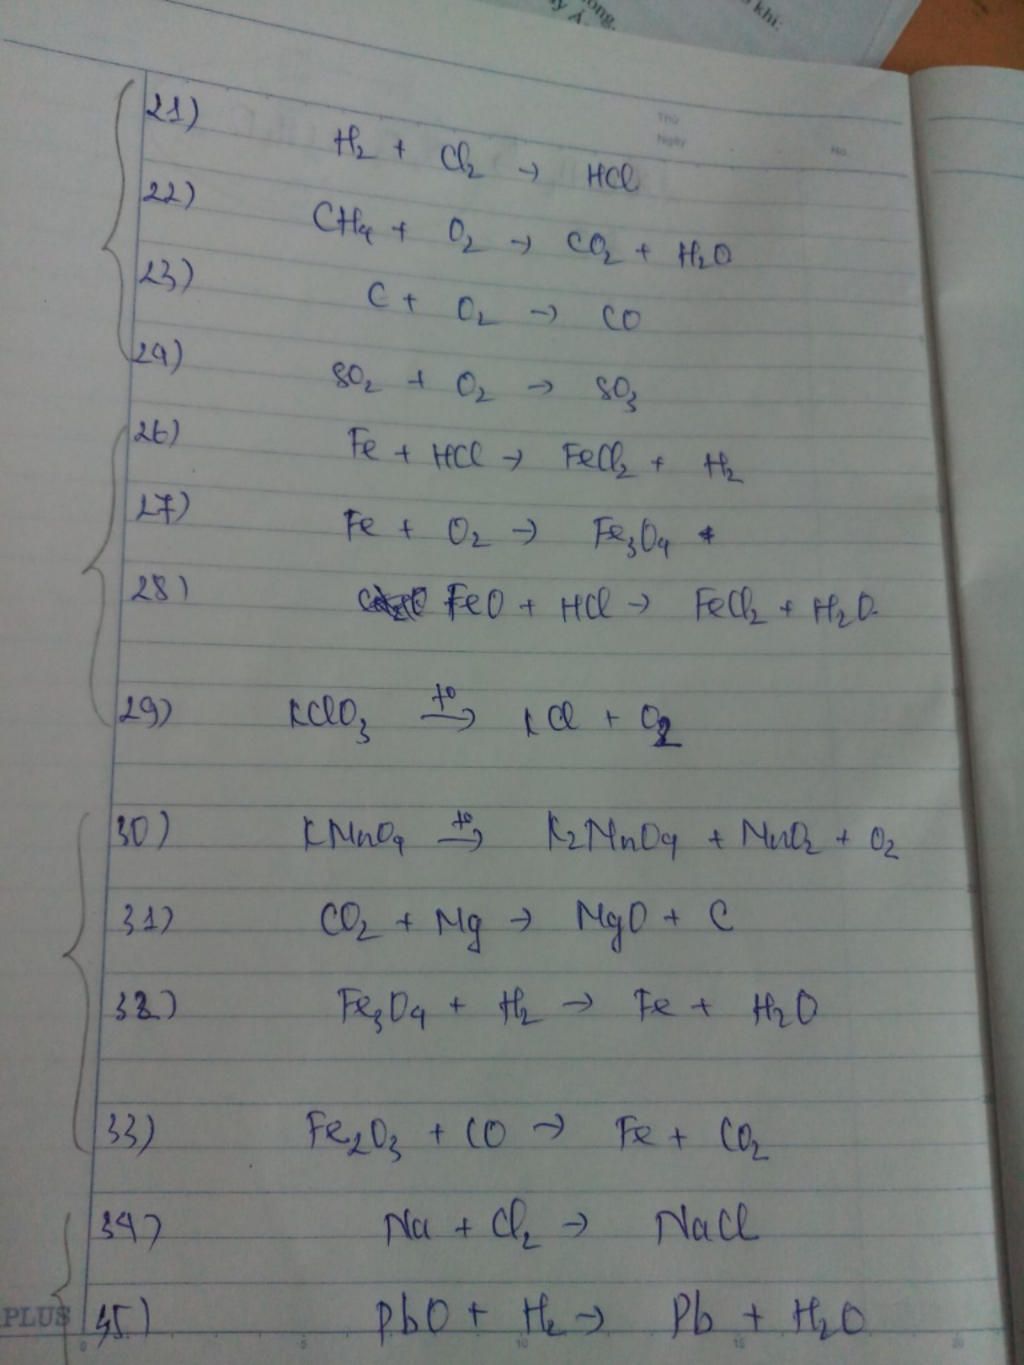 ông.
ý A.
khí:
Thứ
Ngày
No.
21) H₂ + Cl₂ → HCl
22) CH₄ + O₂ → CO₂ + H₂O
23) C + O₂ → CO
24) SO₂ + O₂ → SO₃
26) Fe + HCl → FeCl₂ + H₂
27) Fe + O₂ → Fe₃O₄
28) FeO + HCl → FeCl₂ + H₂O.
29) KClO₃ →(t°) KCl + O₂
30) KMnO₄ →(t°) K₂MnO₄ + MnO₂ + O₂
31) CO₂ + Mg → MgO + C
32) Fe₃O₄ + H₂ → Fe + H₂O
33) Fe₂O₃ + CO → Fe + CO₂
34) Na + Cl₂ → NaCl
35) PbO + H₂ → Pb + H₂O
PLUS
0 5 10 15 20